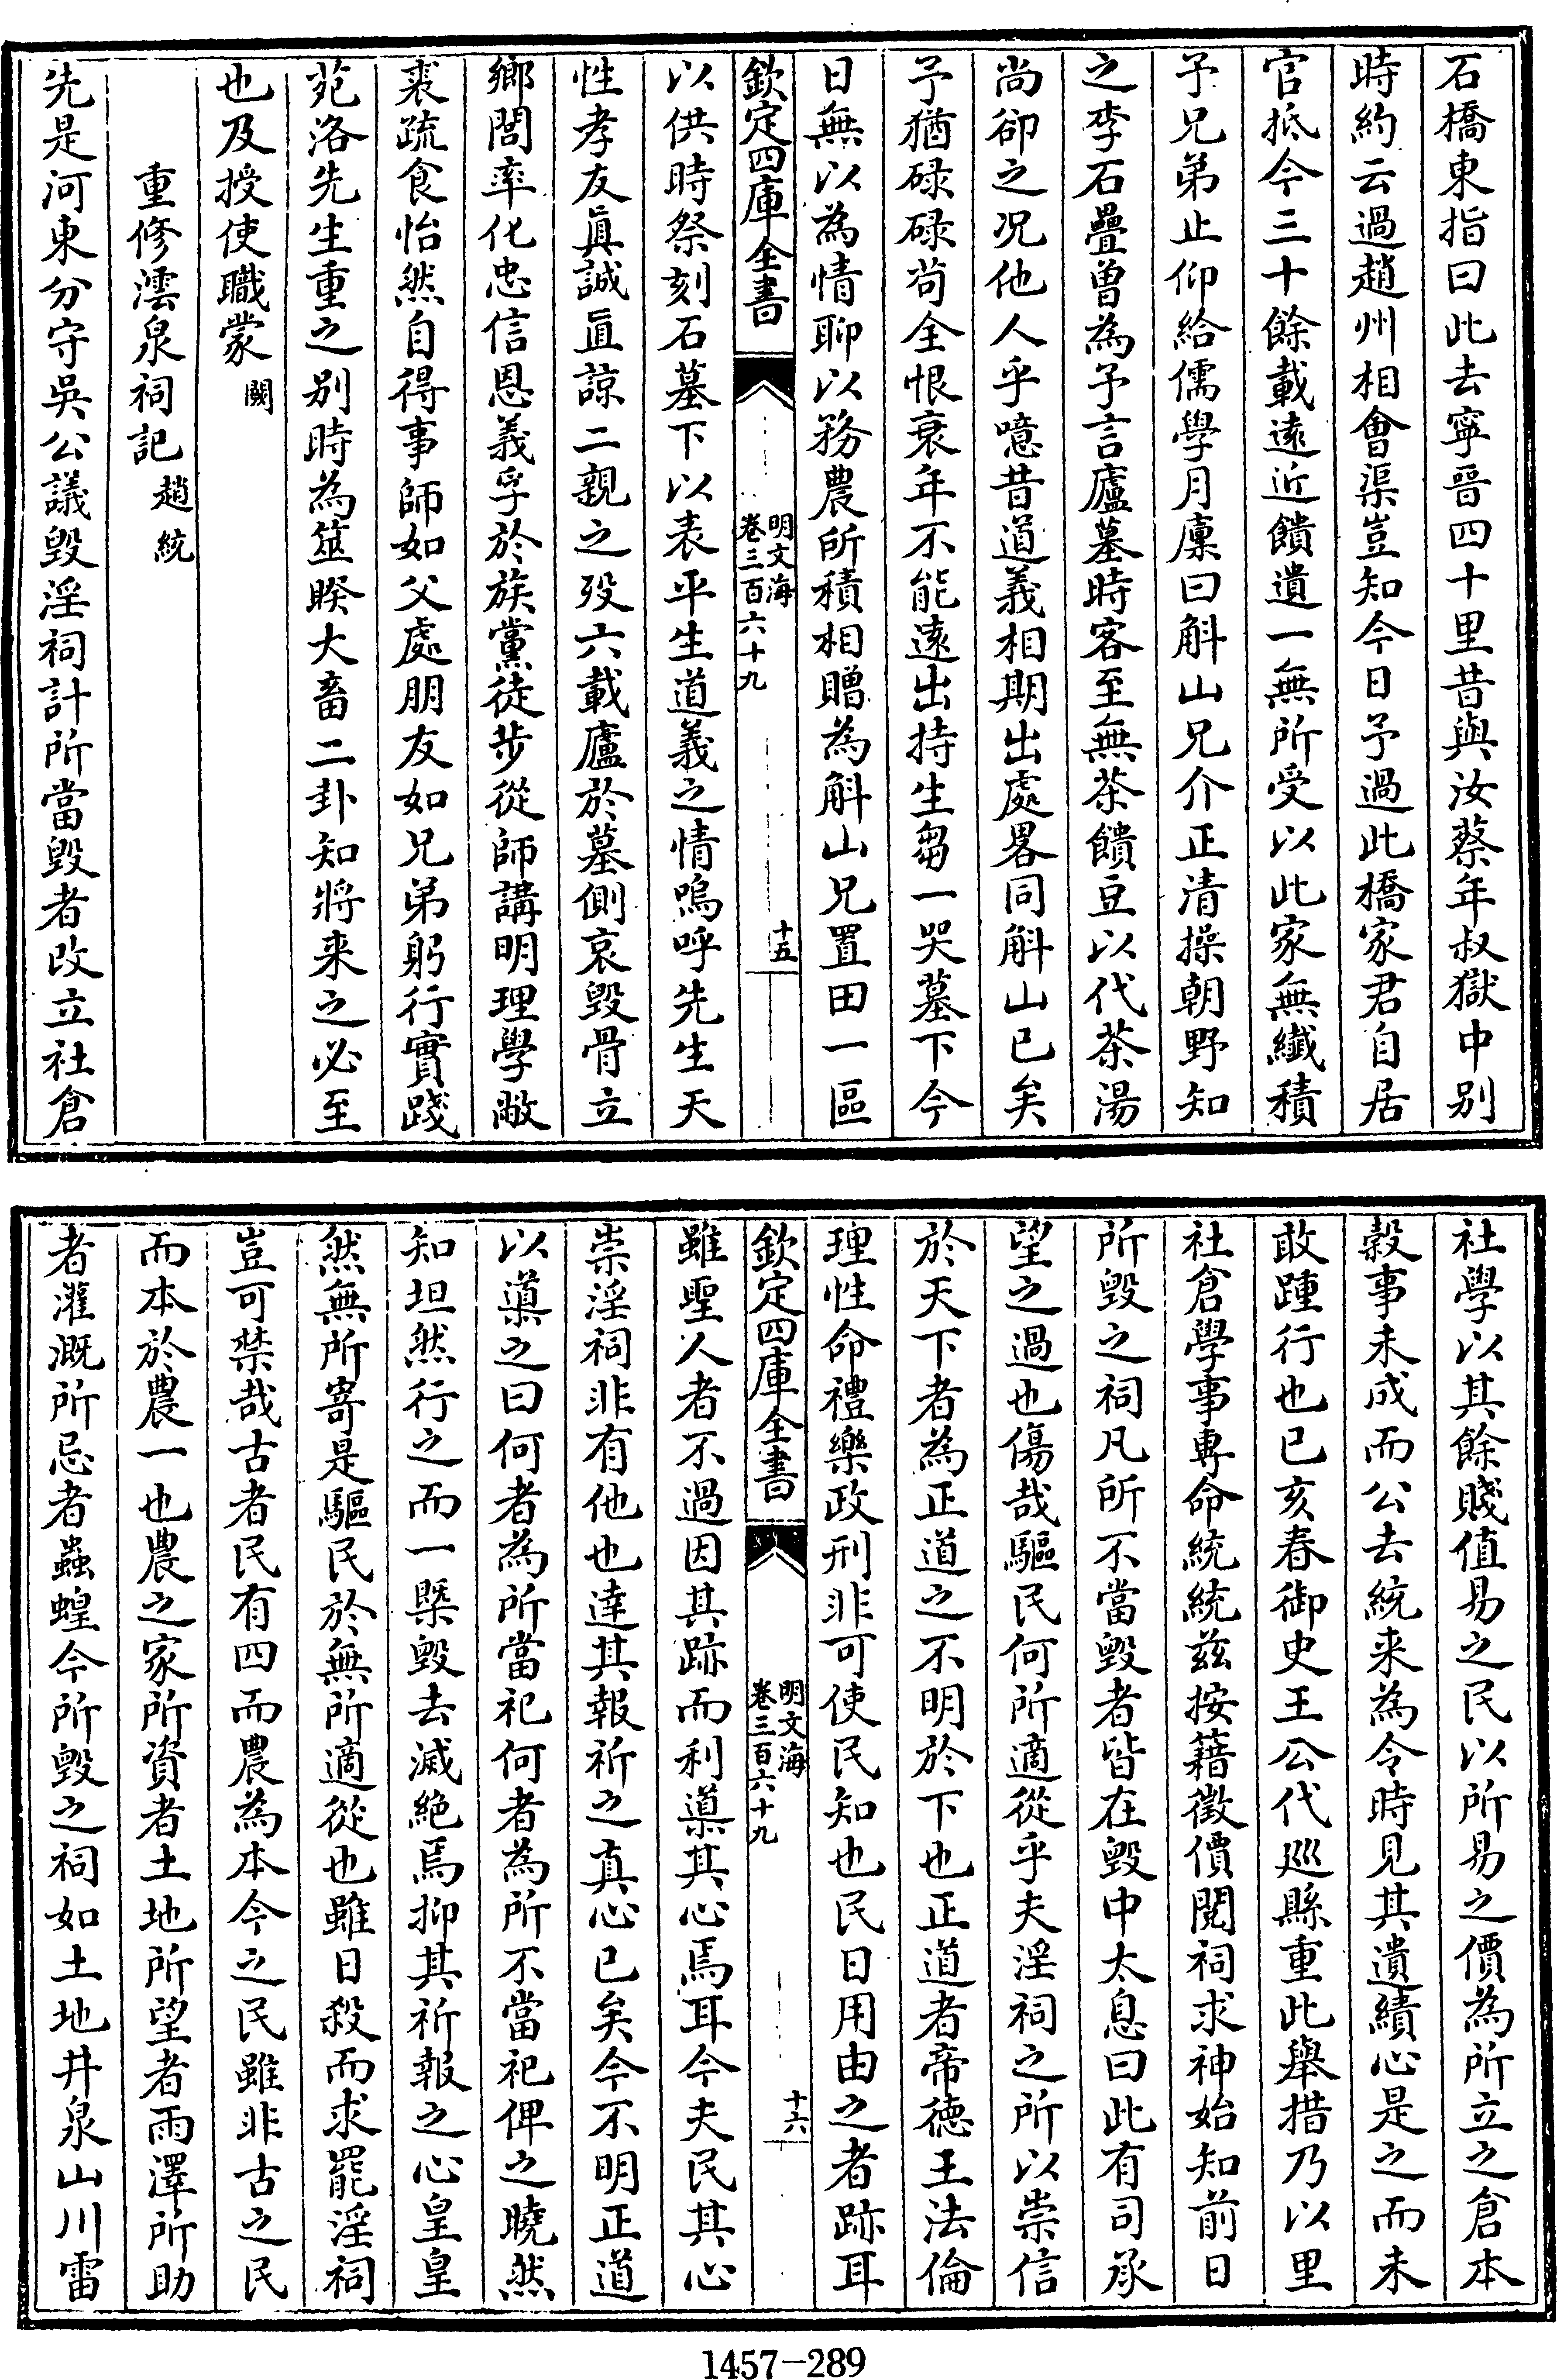 石橋東指曰此去寧晉四十里昔與汝蔡年叔獄中别
時約云過趙州相會渠豈知今日予過此橋家君自居
官抵今三十餘載遠近饋遺一無所受以此家無纎積
予兄弟止仰給儒學月廪曰斛山兄介正清操朝野知
之李石疊曽為予言廬墓時客至無茶饋豆以代茶湯
尚卻之况他人乎噫昔道義相期出處畧同斛山已矣
予猶碌碌苟全恨衰年不能遠出持生芻一哭墓下今
日無以為情聊以務農所積相贈為斛山兄置田一區
欽定四庫全書
明文海
卷三百六十九
十五
以供時祭刻石墓下以表平生道義之情嗚呼先生天
性孝友真誠直諒二親之殁六載廬於墓側哀毁骨立
鄉閭率化忠信恩義孚於族黨徒步從師講明理學敝
裘疏食怡然自得事師如父處朋友如兄弟躬行實踐
苑洛先生重之别時為筮睽大畜二卦知將来之必至
也及授使職蒙闕
重修澐泉祠記 趙統
先是河東分守吳公議毁淫祠計所當毁者改立社倉
社學以其餘賤值易之民以所易之價為所立之倉本
榖事未成而公去統来為令時見其遺績心是之而未
敢踵行也已亥春御史王公代廵縣重此舉措乃以里
社倉學事專命統統兹按籍徵價閲祠求神始知前日
所毁之祠凡所不當毁者皆在毁中太息曰此有司承
望之過也傷哉驅民何所適從乎夫淫祠之所以崇信
於天下者為正道之不明於下也正道者帝德王法倫
理性命禮樂政刑非可使民知也民日用由之者跡耳
欽定四庫全書
明文海
卷三百六十九
十六
雖聖人者不過因其跡而利㯳其心焉耳今夫民其心
崇淫祠非有他也達其報祈之真心已矣今不明正道
以㯳之曰何者為所當祀何者為所不當祀俾之曉然
知坦然行之而一槩毁去滅絶焉抑其祈報之心皇皇
然無所寄是驅民於無所適從也雖日殺而求罷淫祠
豈可禁哉古者民有四而農為本今之民雖非古之民
而本於農一也農之家所資者土地所望者雨澤所助
者灌溉所忌者蟲蝗今所毁之祠如土地井泉山川雷
1457-289